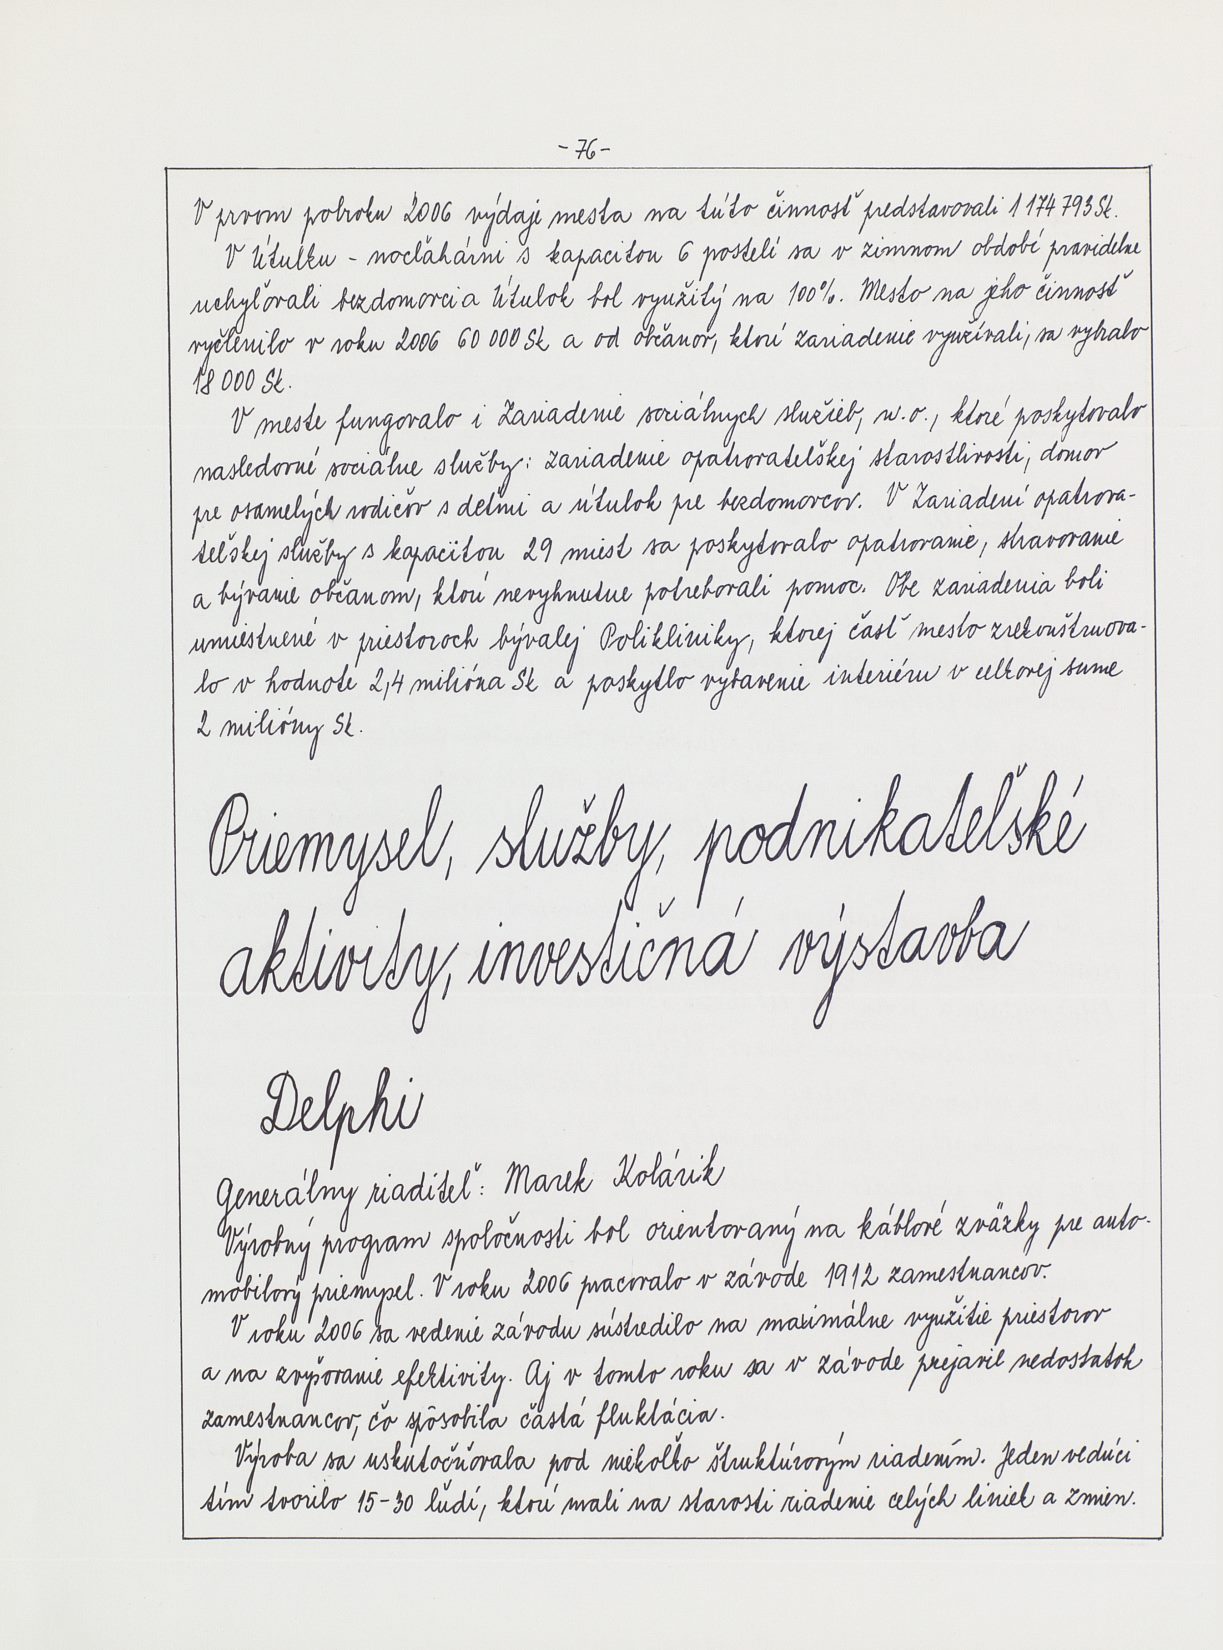 - 76 -
V prvom polroku 2006 výdaje mesta na túto činnosť predstavovali 1 174 793 Sk.
V Útulku - nocľahárni s kapacitou 6 postelí sa v zimnom období pravidelne
uchyľovali bezdomovci a Útulok bol využitý na 100%. Mesto na jeho činnosť
vyčlenilo v roku 2006 60 000 Sk a od občanov, ktorí zariadenie využívali, sa vybralo
18 000 Sk.
V meste fungovalo i Zariadenie sociálnych služieb, n.o., ktoré poskytovalo
nasledovné sociálne služby: zariadenie opatrovateľskej starostlivosti, domov
pre osamelých rodičov s deťmi a útulok pre bezdomovcov. V Zariadení opatrova-
teľskej služby s kapacitou 29 miest sa poskytovalo opatrovanie, stravovanie
a bývanie občanom, ktorí nevyhnutne potrebovali pomoc. Obe zariadenia boli
umiestnené v priestoroch bývalej Polikliniky, ktorej časť mesto zrekonštruova-
lo v hodnote 2,4 milióna Sk a poskytlo vybavenie interiéru v celkovej sume
2 milióny Sk.
Priemysel, služby, podnikateľské
aktivity, investičná výstavba
Delphi
Generálny riaditeľ: Marek Kolárik
Výrobný program spoločnosti bol orientovaný na káblové zväzky pre auto-
mobilový priemysel. V roku 2006 pracovalo v závode 1912 zamestnancov.
V roku 2006 sa vedenie závodu sústredilo na maximálne využitie priestorov
a na zvyšovanie efektivity. Aj v tomto roku sa v závode prejavil nedostatok
zamestnancov, čo spôsobila častá fluktácia.
Výroba sa uskutočňovala pod niekoľko štruktúrovým riadením. Jeden vedúci
tím tvorilo 15-30 ľudí, ktorí mali na starosti riadenie celých liniek a zmien.